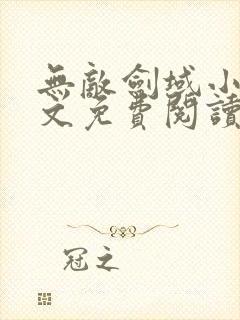 無敵劍域小
文免費閱讀
冠之